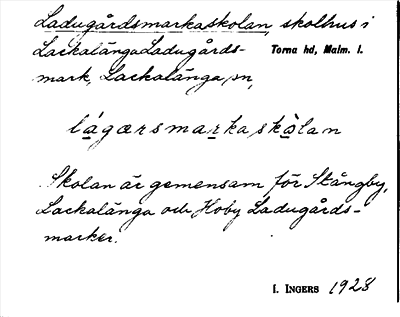 Ladugårdsmarkaskolan, skolhus i
Lackalänga Ladugårds- Torna hd, Malm. l.
mark, Lackalänga sn,
lágærsmarkaskòlan
Skolan är gemensam för Stångby,
Lackalänga och Hoby Ladugårds-
marker.
I. INGERS 1928